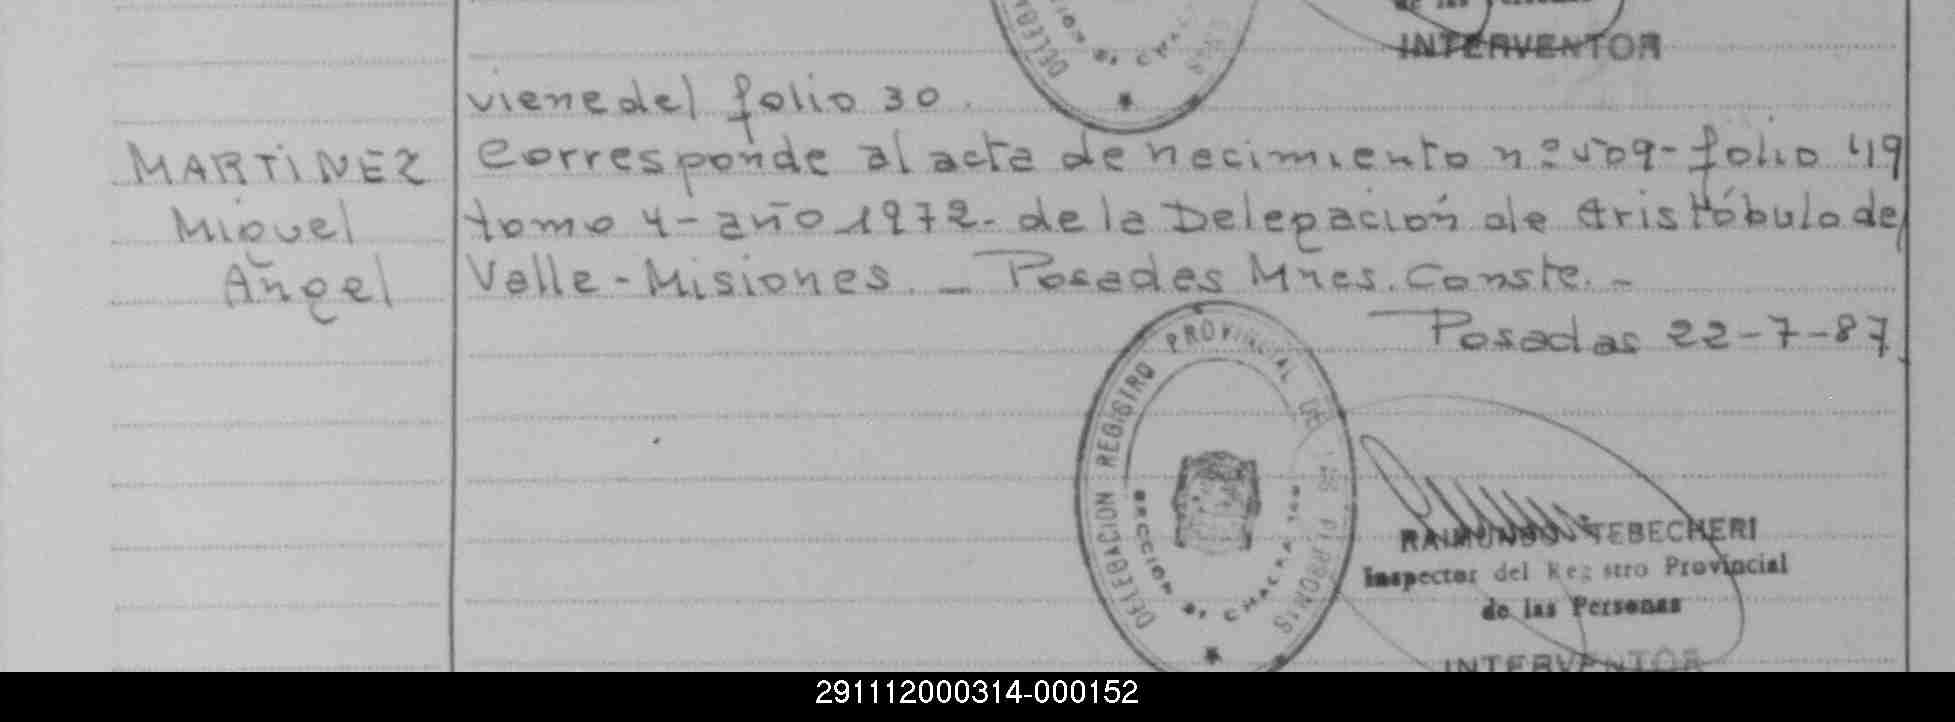 de las Personas
INTERVENTOR
viene del folio 30.
MARTINEZ Corresponde al acta de nacimiento nº 509 - folio 49
Miguel tomo 4 - año 1972 - de la Delegación de Aristóbulo del
Angel Valle - Misiones. - Posadas Mnes. Conste. -
Posadas 22-7-87
DELEGACION REGISTRO PROVINCIAL DE LAS PERSONAS
SECCION B. CHACRA
RAIMUNDO TEBECHERI
Inspector del Registro Provincial
de las Personas
INTERVENTOR
291112000314-000152